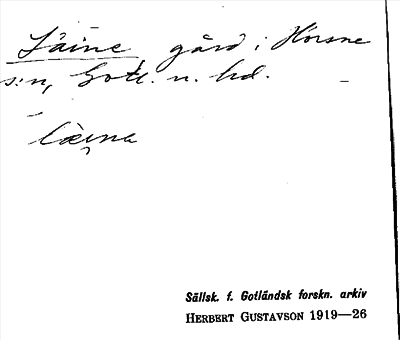 Läine gård i Horsne
s:n, Gotl. n. hd.
Sällsk. f. Gotländsk forskn. arkiv
HERBERT GUSTAVSON 1919—26